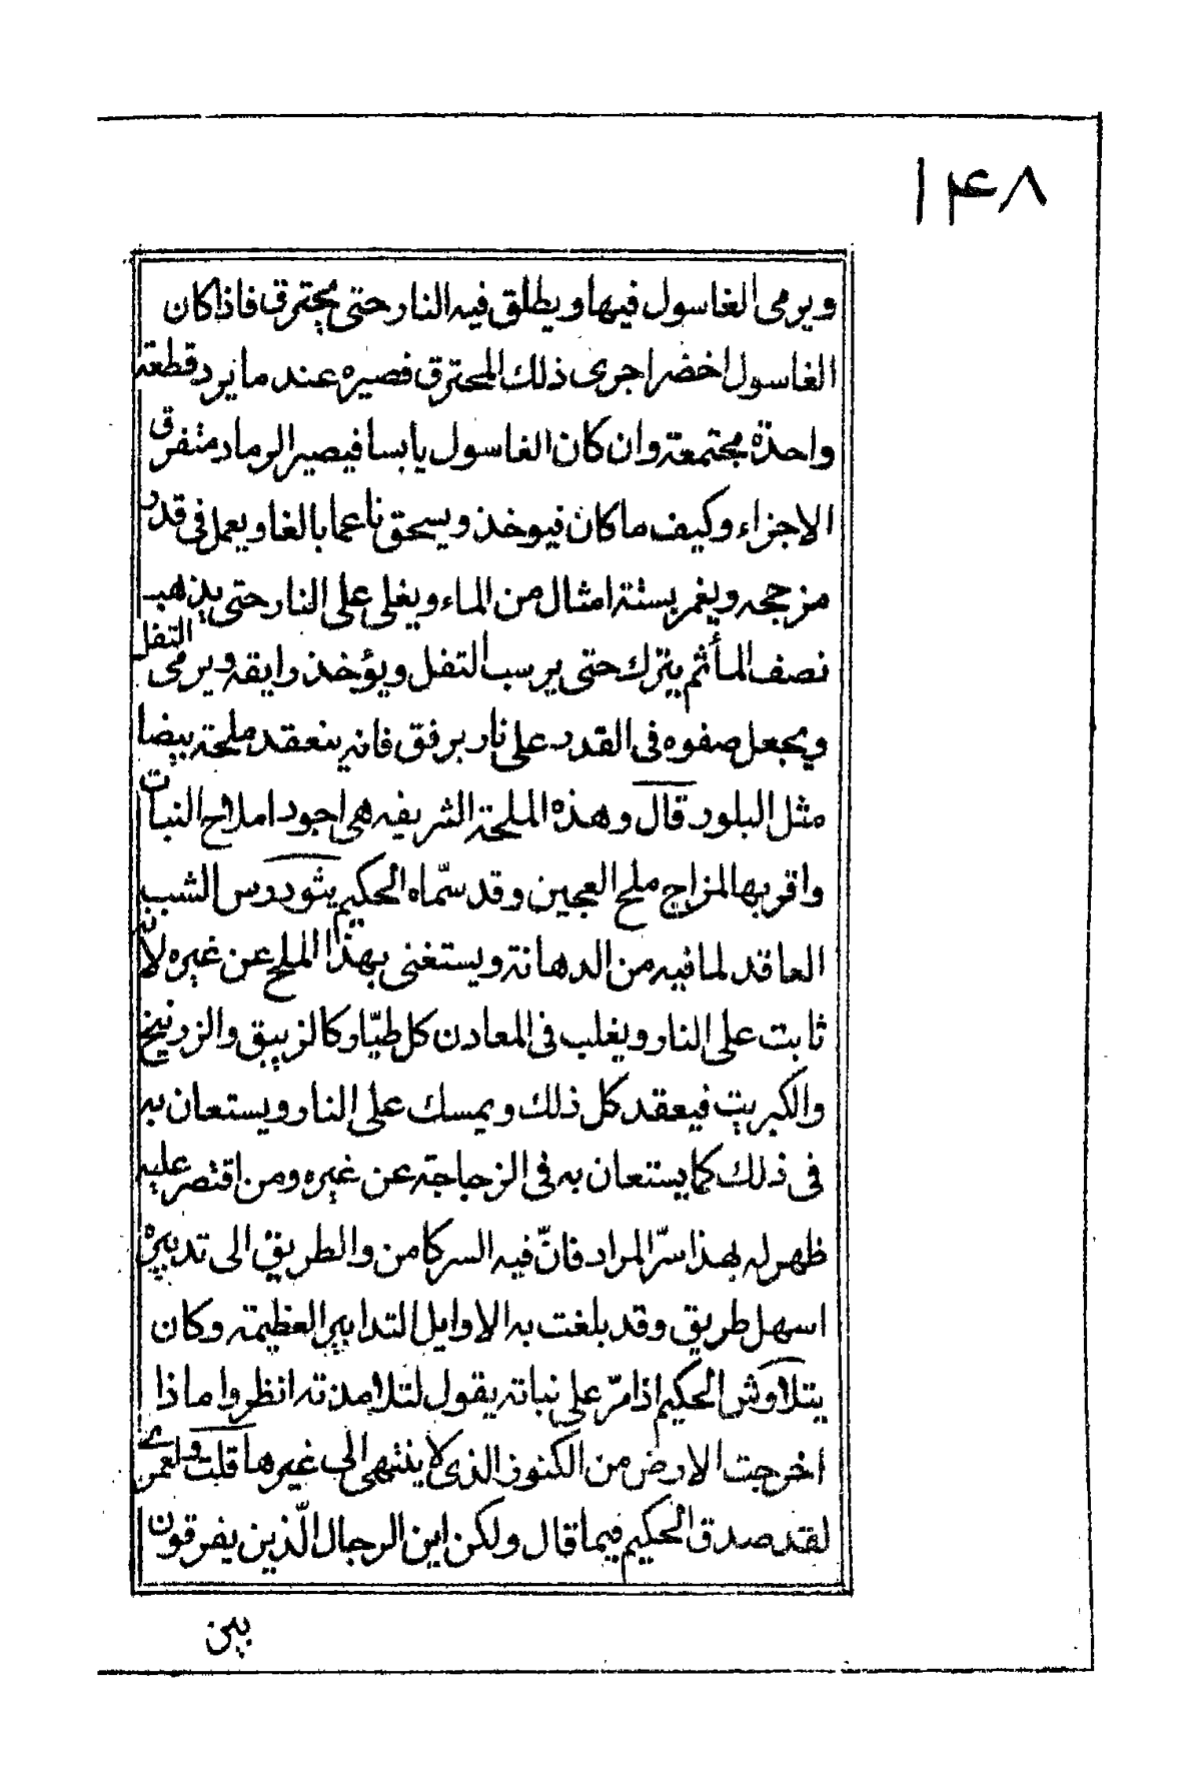 ۱۴۸
ويرمى الغاسول فيها ويطلق فيه النار حتى يحترق فاذا كان
الغاسول اخضر اجرى ذلك المحترق فصيره عند ما يرد قطعة
واحدة مجتمعة وان كان الغاسول يابسا فيصير الرماد متفرق
الاجزاء وكيف ما كان فيوخذ ويسحق ناعما بالغا ويعمل فى قدر
من حجر ويغمر بستة امثال من الماء ويغلى على النار حتى يذهب
نصف الماثم يترك حتى يرسب التفل ويؤخذ رايقه ويرمى التفل
ويجعل صفوه فى القدر على نار برفق فانه ينعقد ملحة بيضا
مثل البلور قال وهذه الملحة الشريفه هى اجود املاح النبات
واقربها لمزاج ملح العجين وقد سمّاه الحكيم يثودروس الشب
العاقد لما فيه من الدهانة ويستغنى بهذا الملح عن غيره لانه
ثابت على النار ويغلب فى المعادن كل طيّار كالزيبق والزرنيخ
والكبريت فيعقد كل ذلك ويمسك على النار ويستعان به
فى ذلك كما يستعان به فى الزجاجة عن غيره ومن اقتصر عليه
ظهر له بهذا سرّ المراد فانّ فيه السر كامن والطريق الى تدبيره
اسهل طريق وقد بلغت به الاوايل التدابير العظيمة وكان
يتلاوش الحكيم اذا مرّ على نباته يقول لتلامذته انظروا ماذا
اخرجت الارض من الكنوز الذى لا ينتهى الى غيرها قلت ولعمرى
لقد صدق الحكيم فيما قال ولكن اين الرجال الّذين يفرقون
بين